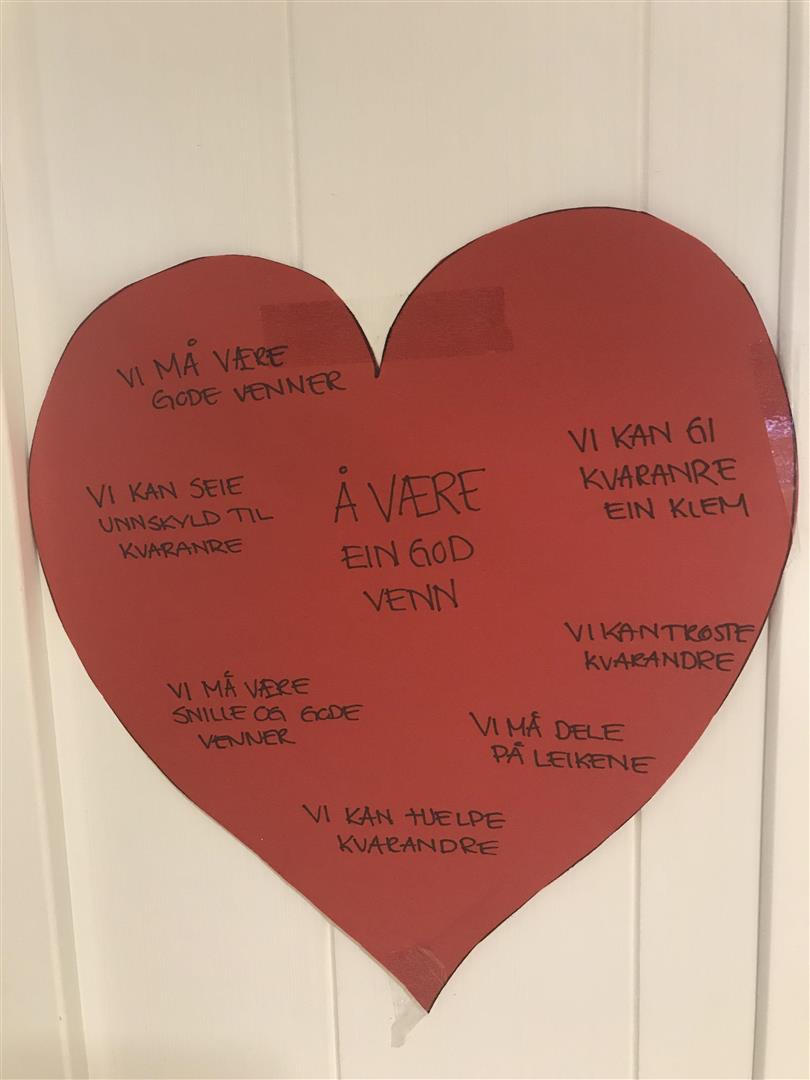 VI MÅ VÆRE
GODE VENNER
VI KAN SEIE
UNNSKYLD TIL
KVARANRE
Å VÆRE
EIN GOD
VENN
VI KAN GI
KVARANRE
EIN KLEM
VI KAN TRØSTE
KVARANDRE
VI MÅ VÆRE
SNILLE OG GODE
VENNER
VI MÅ DELE
PÅ LEIKENE
VI KAN HJELPE
KVARANDRE